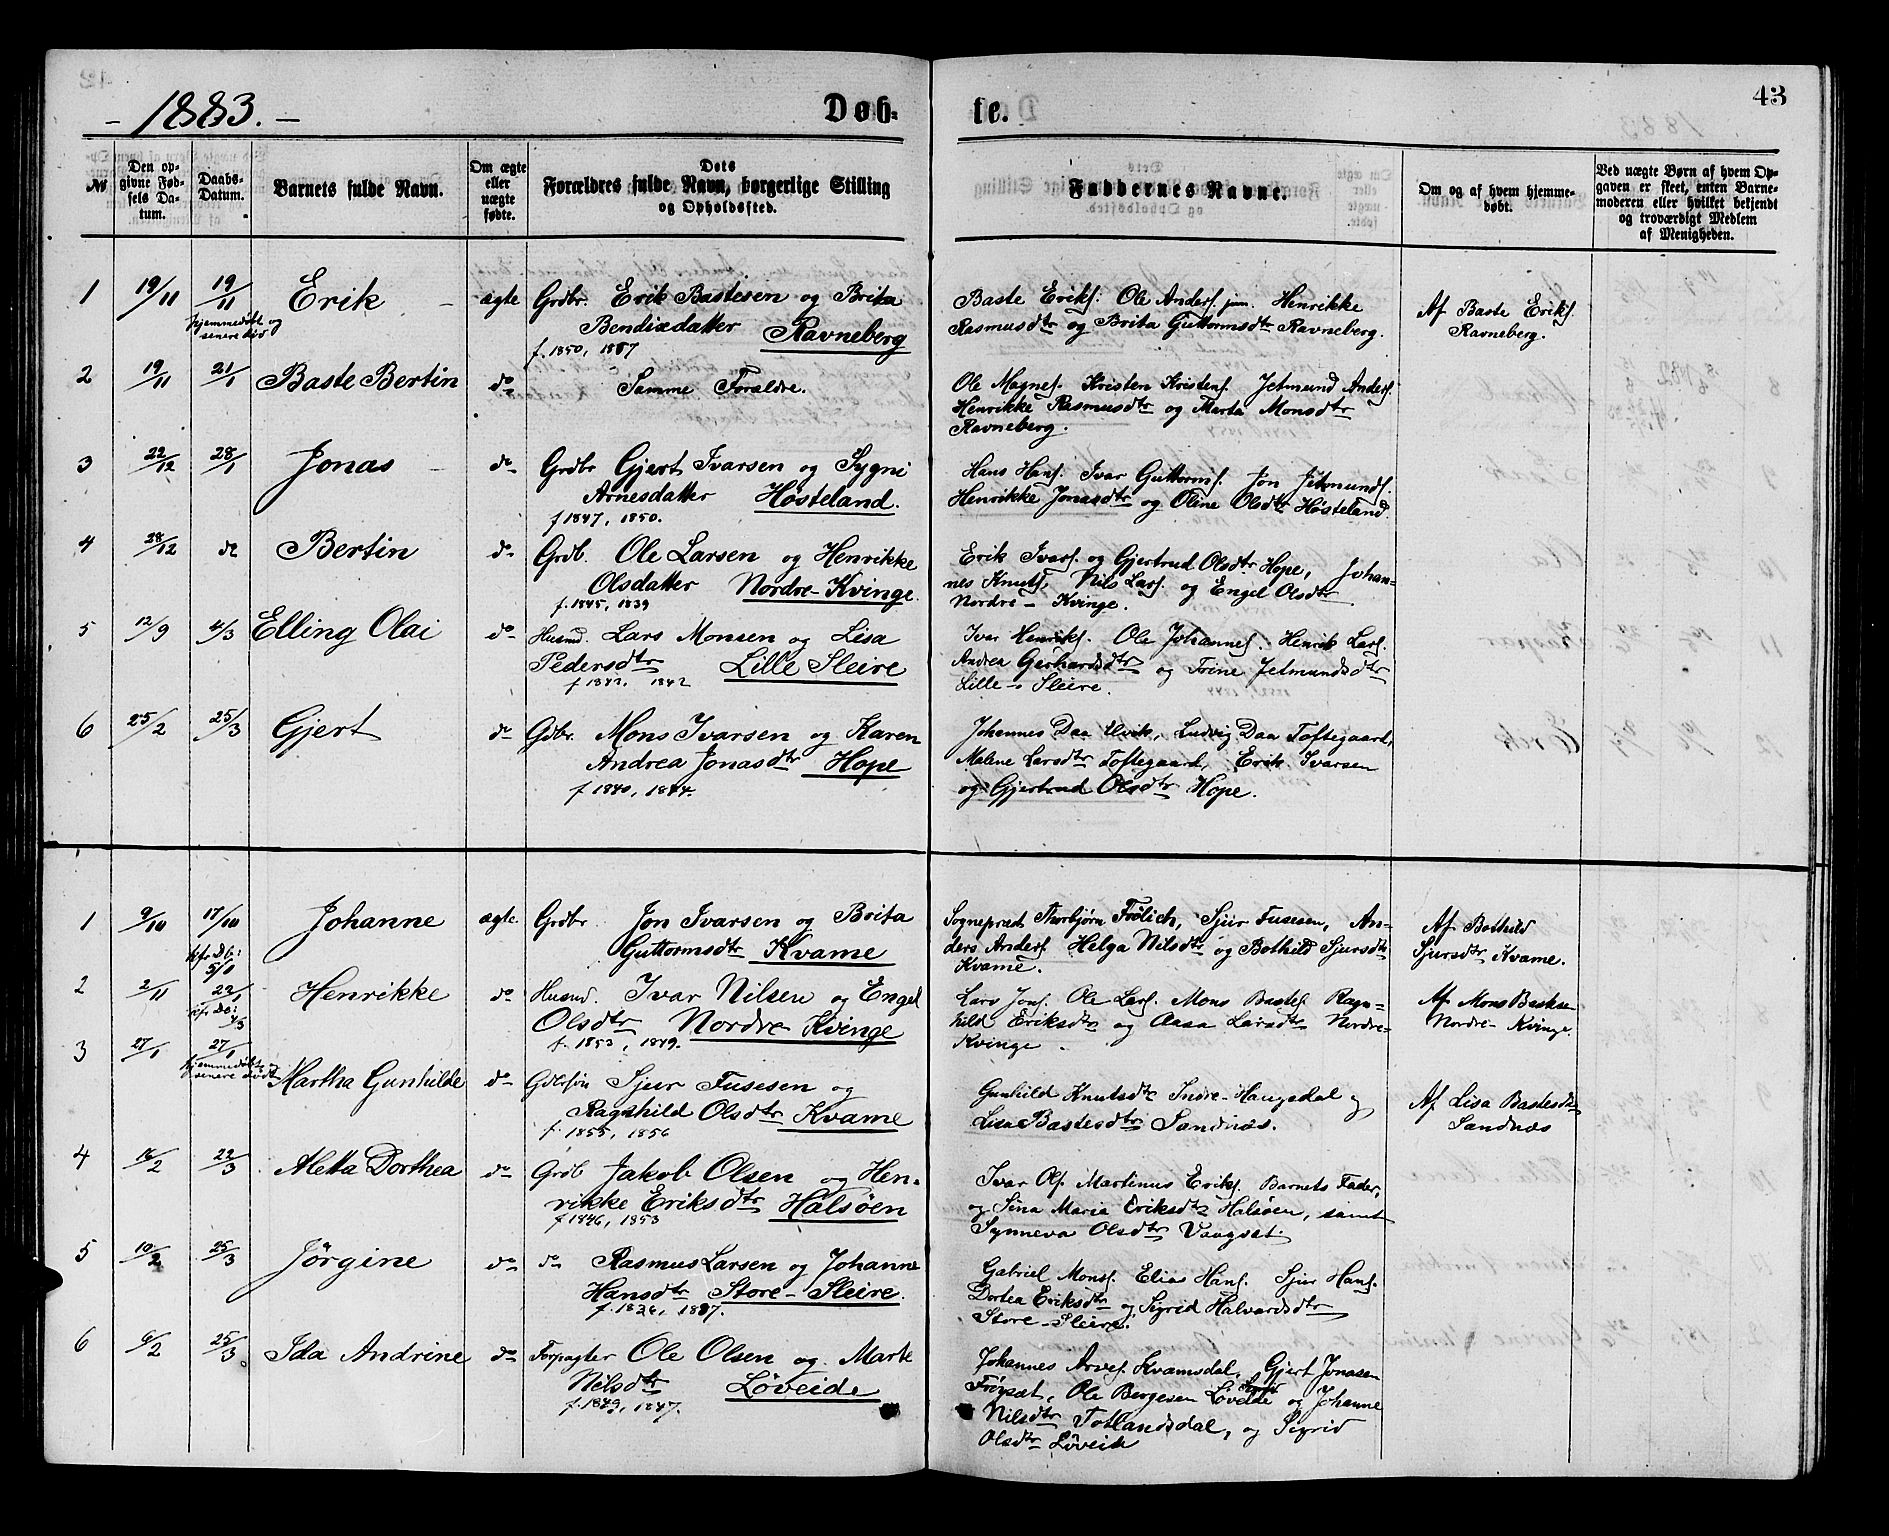 - 1883. -
Døb-
te.
43
№
Den op-
givne Fød-
sels Da-
tum.
Daabs-
Datum.
Barnets fulde Navn.
Om ægte
eller
uægte
fødte.
Dets
Forældres fulde Navn, borgerlige Stilling
og Opholdssted.
Faddernes Navne.
Om og af hvem hjemme-
døbt.
Ved uægte Børn af hvem Op-
gaven er skeet, enten Barne-
moderen eller hvilket bekjendt
og troværdigt Medlem
af Menigheden.
1 19/11 19/11 Erik ægte Grdbr. Erik Bastesen og Brita
hjemmedøbt og
senere død
Bendixdatter Ravneberg
f. 1850, 1857
Baste Eriks. Ole Anders. jun. Henrikke
Rasmusdtr og Brita Guttormsdtr Ravneberg.
Af Baste Eriks.
Ravneberg.
2 19/11 21/1 Baste Bertin do Samme Forældre.
Ole Magnes. Kristen Kristens. Jetmund Anders.
Henrikke Rasmusdtr og Marta Monsdtr
Ravneberg.
3 22/12 28/1 Jonas do Grdbr Gjert Ivarsen og Sygni
Arnesdatter Høsteland.
f 1847, 1850.
Hans Hans. Ivar Guttorms. Jon Jetmunds.
Henrikke Jonasdtr og Oline Olsdtr Høsteland.
4 28/12 do Bertin do Grdb. Ole Larsen og Henrikke
Olsdatter Nordre-Kvinge.
f. 1845, 1839
Erik Ivars. og Gjertrud Olsdtr Hope, Johan-
nes Knuts., Nils Lars. og Engel Olsdtr
Nordre-Kvinge.
5 12/9 4/3 Elling Olai do Husmd. Lars Monsen og Lisa
Pedersdtr Lille Sleire
f 1842, 1842
Ivar Henriks. Ole Johannes. Henrik Lars.
Andrea Gerhardsdtr og Trine Jetmundsdtr
Lille-Sleire.
6 25/2 25/3 Gjert do Gdbr. Mons Ivarsen og Karen
Andrea Jonasdtr Hope
f 1840, 1844.
Johannes Daa Ulvik, Ludvig Daa Toftegaard,
Malene Larsdtr Toftegaard, Erik Ivarsen
og Gjertrud Olsdtr Hope.
1 9/10 17/10 Johanne ægte. Grdbr. Jon Ivarsen og Brita
Guttormsdtr Kvame
Sogneprest Thorbjørn Frølich, Sjur Fusesen, An-
ders Anders. Helga Nilsdtr og Bothild Sjursdtr
Kvame.
Af Bothild
Sjursdtr Kvame.
2 2/11 22/1 Henrikke do Husmd. Ivar Nilsen og Engel
Olsdtr Nordre Kvinge
f. 1853, 1849.
Lars Jons. Ole Lars. Mons Bastes. Ragn-
hild Eriksdtr og Aasa Larsdtr Nordre-
Kvinge.
Af Mons Bastesen
Nordre-Kvinge.
3 27/1 27/1
hjemmedøbt og
senere død
Martha Gunhilde do Gdbrsøn Sjur Fusesen og
Ragnhild Olsdtr Kvame
f. 1855, 1856
Gunhild Knutsdtr Indre-Haugsdal og
Lisa Bastesdtr Sandnæs.
Af Lisa Bastesdtr
Sandnæs
4 16/2 22/3 Aletta Dorthea do Grdb Jakob Olsen og Hen-
rikke Eriksdtr Halsøen
f 1846, 1853
Ivar Ols. Martinus Eriks. Barnets Fader,
og Sina Maria Eriksdtr Halsøen, samt
Synneva Olsdtr Vaagsæt.
5 10/2 25/3 Jørgine do do Rasmus Larsen og Johanne
Hansdtr Store-Sleire.
f. 1836, 1837.
Gabriel Mons. Elias Hans. Sjur Hans.
Dortea Eriksdtr og Sigrid Halvardsdtr
Store-Sleire.
6 6/2 25/3 Ida Andrine do Forpagter Ole Olsen og Marte
Nilsdtr Løveide
f. 1849, 1847.
Johannes Arves. Kvamsdal, Gjert Jonasen
Frøyset, Ole Bergesen Løveide og Johanne
Nilsdtr Totlandsdal, og Sigrid
Olsdtr Løveik